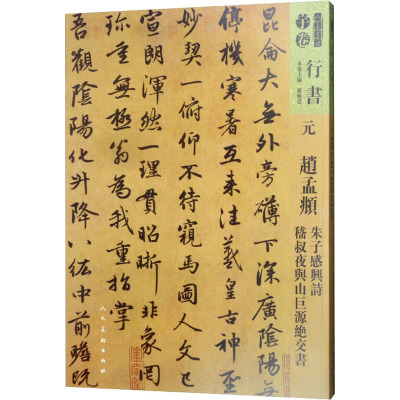 千卷
行書
元 趙孟頫
朱子感興詩
嵇叔夜與山巨源絶交書
昆侖大無外旁礴下深廣陰陽無
停機寒暑互来往羲皇古神聖
妙契一俯仰不待窺馬圖人文已
宣朗渾然一理貫昭晰非象罔
珍重無極翁為我重指掌
吾觀陰陽化升降八紘中前瞻既
人民美術出版社